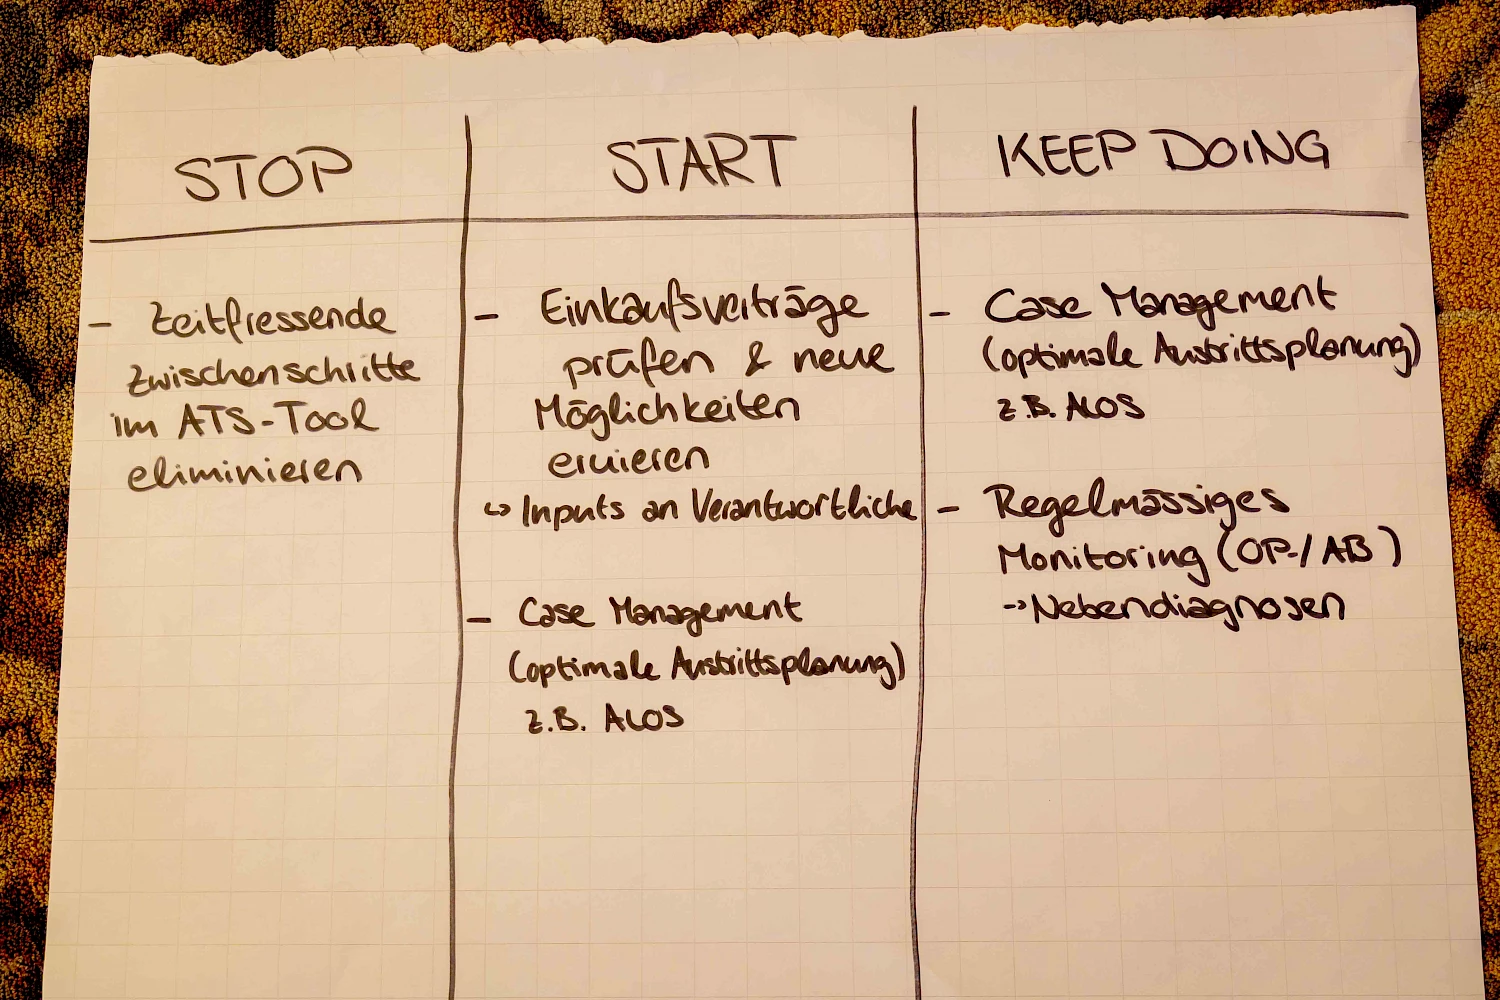 STOP
- Zeitfressende
Zwischenschritte
im ATS-Tool
eliminieren
START
- Einkaufsverträge
prüfen & neue
Möglichkeiten
eruieren
↪ Inputs an Verantwortliche
- Case Management
(optimale Austrittsplanung)
z.B. ALOS
KEEP DOING
- Case Management
(optimale Austrittsplanung)
z.B. ALOS
- Regelmässiges
Monitoring (OP-/AB)
→ Nebendiagnosen